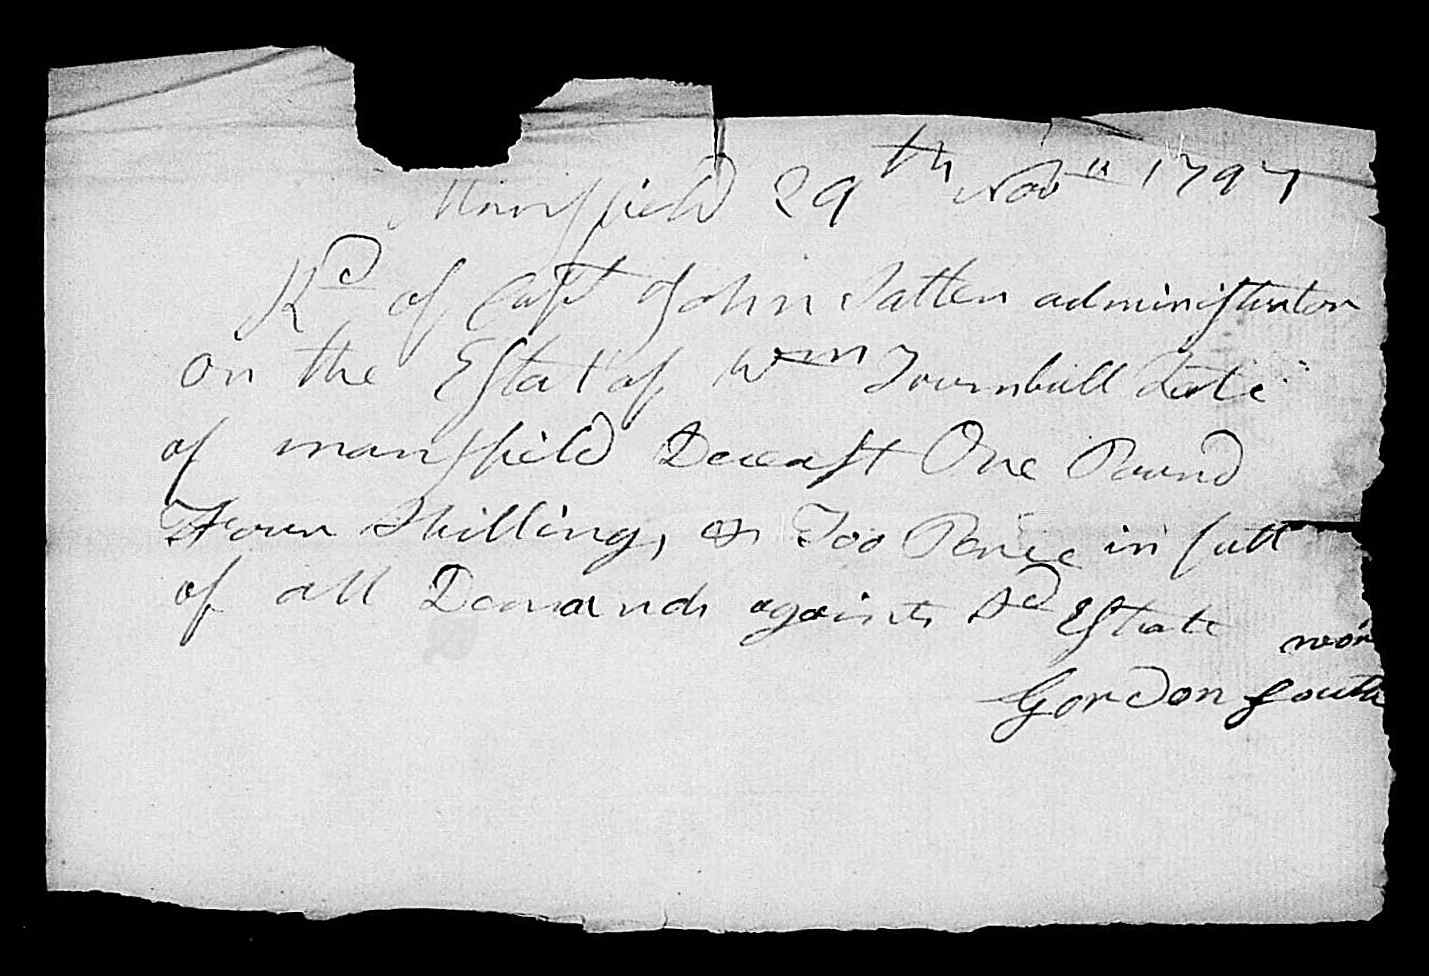 Mansfield 29th Novr 1797
Rd of Capt John Satten administrator
on the Estat of Wm Tournbull Late
of mansfield Deceast One Pound
Four Shillings & Too Pence in full
of all Demands against Sd Estate
Gordon